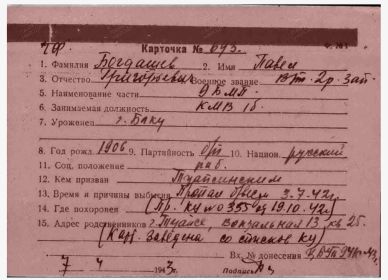 ЧФ Карточка № 693. Ф. № 1
1. Фамилия Богдашев 2. Имя Павел
3. Отчество Григорьевич Военное звание Вт. 2р. зап.
5. Наименование части 9 БМП
6. Занимаемая должность КМВ 1б.
7. Уроженец г. Баку
8. Год рожд. 1906 9. Партийность б/п 10. Национ. русский
11. Соц. положение раб.
12. Кем призван Туапсинским
13. Время и причины выбытия Пропал б/вести 3.7.42г.
14. Где похоронен (Пр. КУ № 0355 от 19.10.42г.)
15. Адрес родственников г. Туапсе, вокзальная 13 кв. 25.
(Карт. Заведена со списков КУ)
Вх. № донесения
7 4 1943г. Подпись